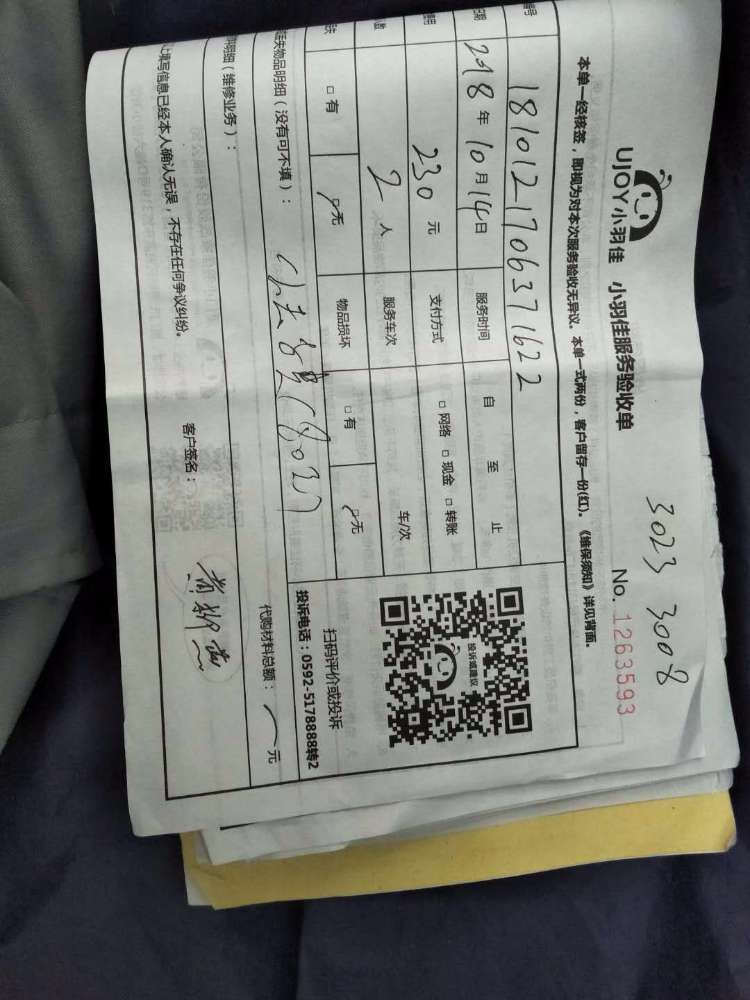 3023 3008
UJOY小羽佳 小羽佳服务验收单
No. 1263593
本单一经核签，即视为对本次服务验收无异议。本单一式两份，客户留存一份(红)。《维保须知》详见背面。
编号 1810121706371622
日期 2018年10月14日 服务时间 自 至 止
费用 230元 支付方式 □网络 □现金 □转账
人数 2人 服务车次 车/次
□有 □无 物品损坏 □有 □无
投诉或建议
扫码评价或投诉
投诉电话：0592-5178888转2
遗失物品明细（没有可不填）：
代购材料总额： 元
明细（维修业务）：
填写信息已经本人确认无误，不存在任何争议纠纷。 客户签名：